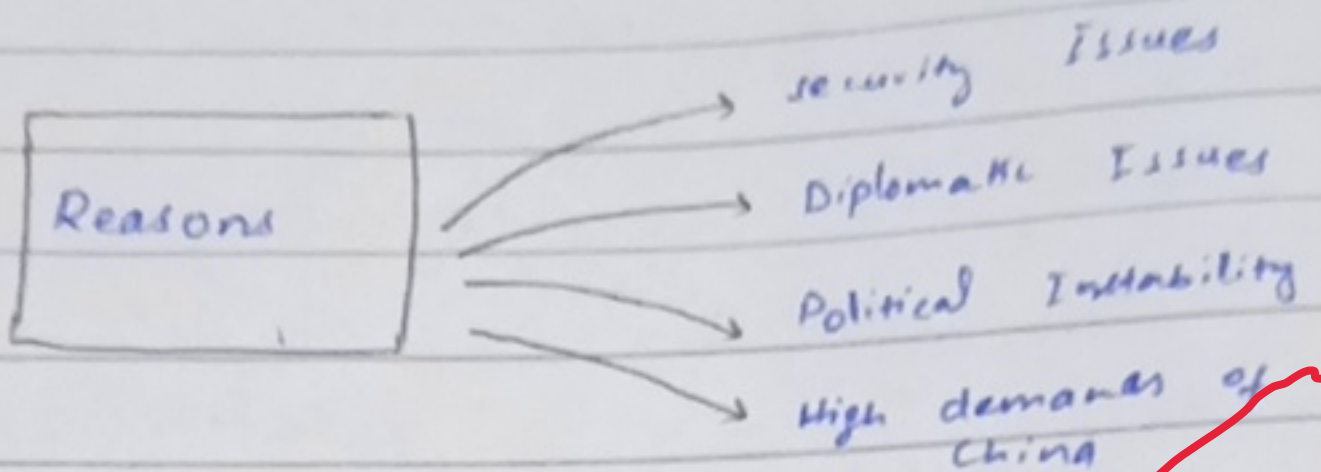 security Issues
Reasons
Diplomatic Issues
Political Instability
High demands of
China